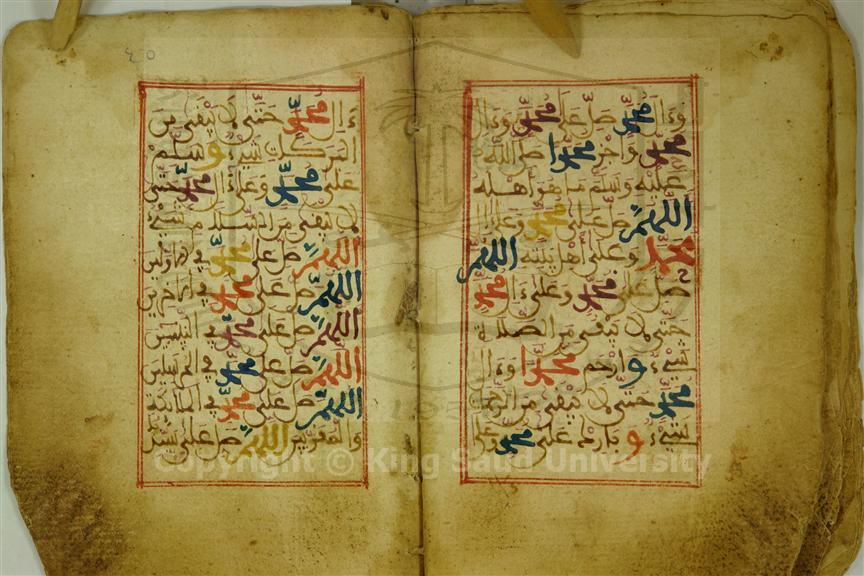 وءال محمد صل على محمد وءال
محمد واجز محمدا صلى الله
عليه وسلم ما هو أهله
اللهم صل على محمد وعلى ءال
محمد وعلى أهل بيته اللهم
صل على محمد وعلى ءال محمد
حتى لا يبقى من الصلاة
شيء وارحم محمدا وءال
محمد حتى لا يبقى من الرحمة
شيء وبارك على محمد وعلى
ءال محمد حتى لا يبقى من
البركة شيء وسلم
على محمد وعلى ءال محمد حتى
لا يبقى من السلام شيء
اللهم صل على محمد في الأولين
اللهم صل على محمد في الآخرين
اللهم صل على محمد في النبيين
اللهم صل على محمد في المرسلين
اللهم صل على محمد في الملائكة
والمقربين اللهم صل على
Copyright © King Saud University